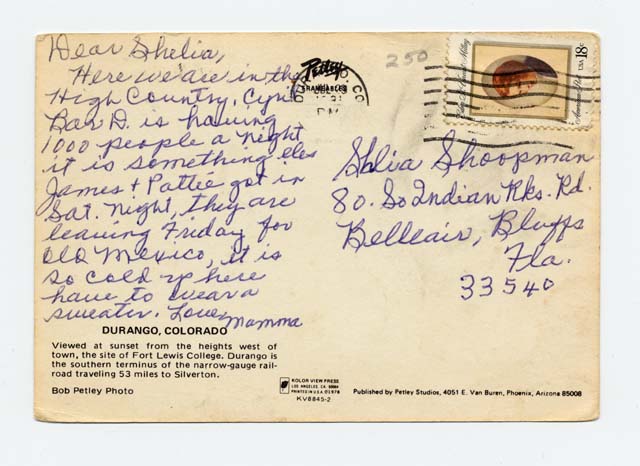 Dear Shelia,
Here we are in the
High Country.
Bar D. is having
1000 people a night
it is something eles
James + Pattie got in
Sat. Night, they are
leaving Friday for
Old Mexico, it is
so cold up here
have to wear a
sweater. Love,
Mamma
250
Petley
DURANGO, CO
PM
Edna St. Vincent Millay
American Poet
USA 18c
Shlia Shoopman
80. So Indian Rks. Rd.
Belleair, Bluffs
Fla.
33540
DURANGO, COLORADO
Viewed at sunset from the heights west of
town, the site of Fort Lewis College. Durango is
the southern terminus of the narrow-gauge rail-
road traveling 53 miles to Silverton.
Bob Petley Photo
KOLOR VIEW PRESS
LOS ANGELES, CA
PRINTED IN U.S.A.
KV8845-2
Published by Petley Studios, 4051 E. Van Buren, Phoenix, Arizona 85008